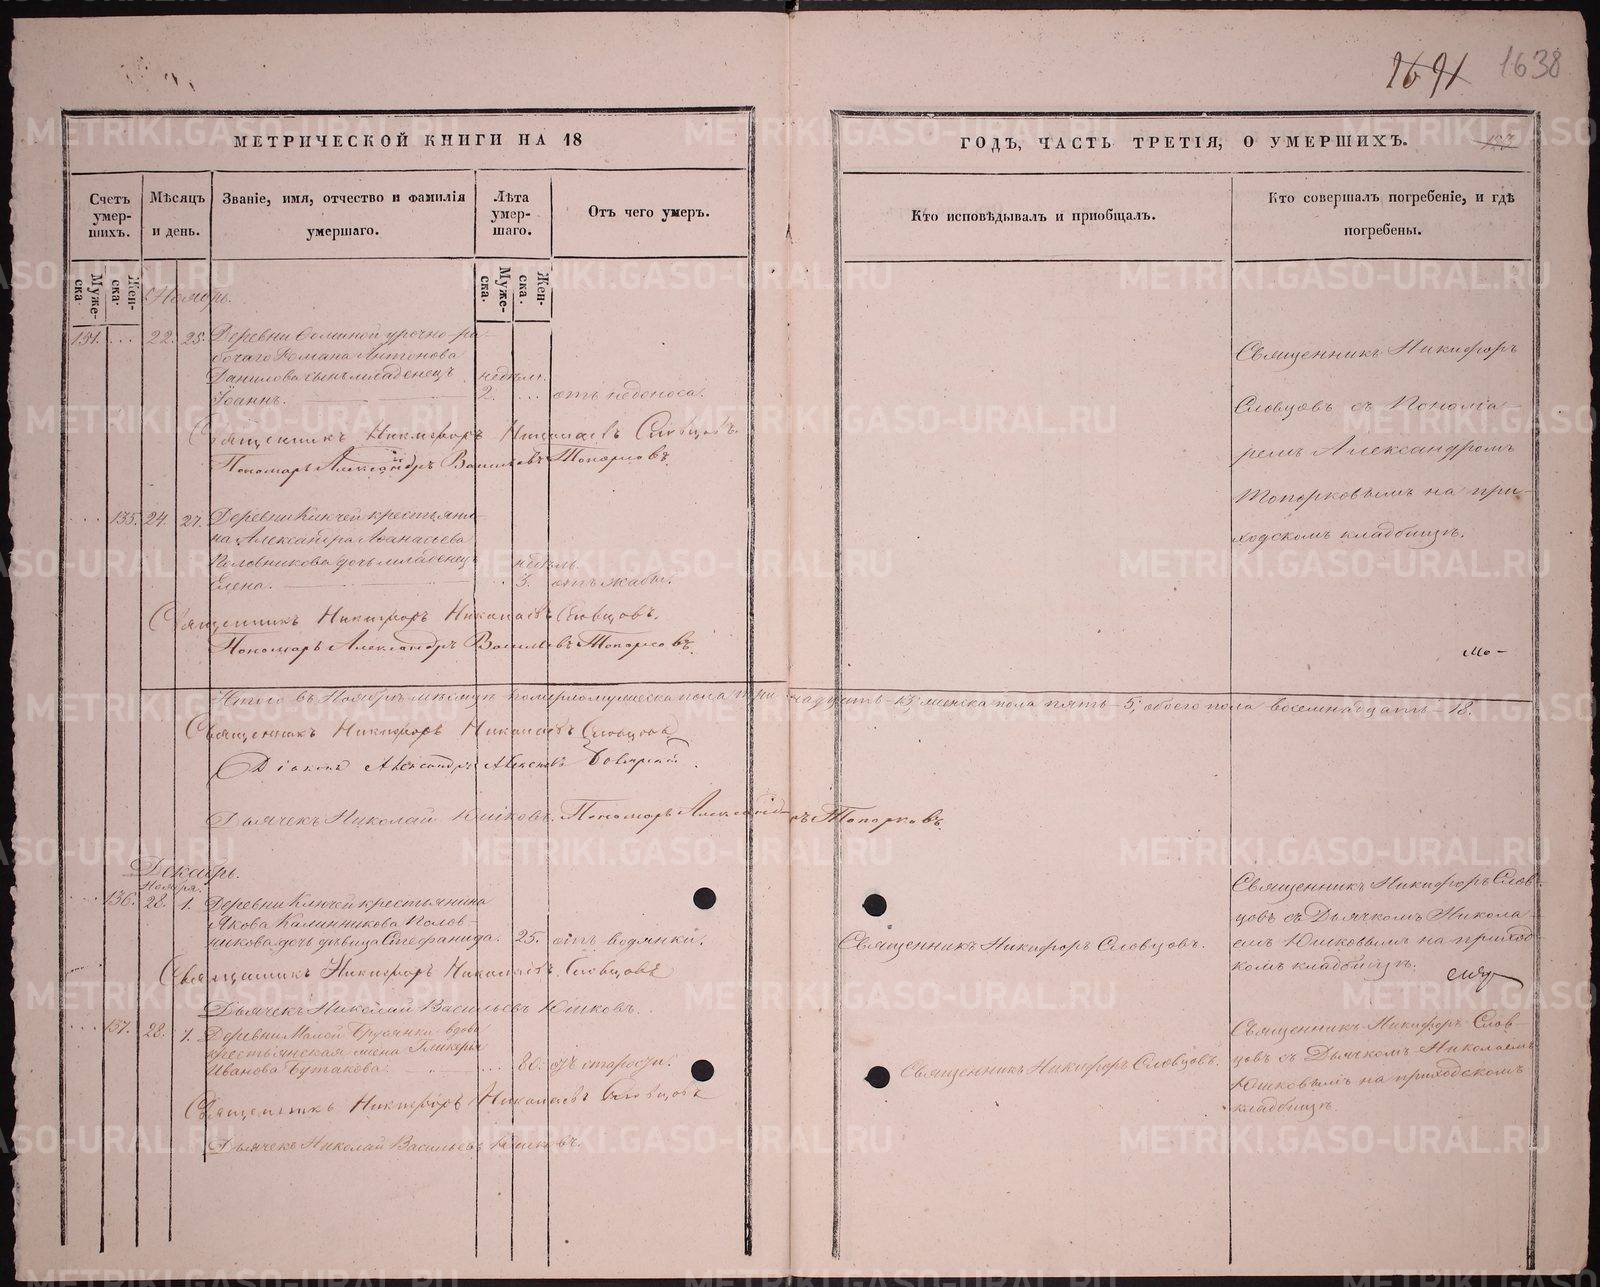 1691 1638
МЕТРИЧЕСКОЙ КНИГИ НА 18
ГОДЪ, ЧАСТЬ ТРЕТІЯ, О УМЕРШИХЪ.
Счетъ умер-
шихъ.
Мѣсяцъ
и день.
Званіе, имя, отчество и фамилія
умершаго.
Лѣта
умер-
шаго.
Отъ чего умеръ.
Кто исповѣдывалъ и приобщалъ.
Кто совершалъ погребеніе, и гдѣ
погребены.
Муже-
ска
Жен-
ска.
Муже-
ска.
Жен-
ска.
Ноябрь.
22. 25. Деревни урочно-ра-
бочаго Романа Антонова
Данилова сынъ младенецъ недѣли.
Іоаннъ. 2. ... отъ недоноса.
Священникъ Никифоръ Николаевъ Словцовъ.
Пономарь Александръ Васильевъ Топорковъ.
Священникъ Никифоръ
Словцовъ съ Понома-
ремъ Александромъ
Топорковымъ на при-
ходскомъ кладбищѣ.
... 135. 24. 27. Деревни Ключей крестьяни-
на Александра Аѳанасьева
Половникова дочь младенецъ недѣль
Елена. 3. отъ жабы.
Священникъ Никифоръ Николаевъ Словцовъ.
Пономарь Александръ Васильевъ Топорковъ.
Итого въ Ноябрѣ мѣсяцѣ померло мужеска пола тринадцать - 13, женска пола пять - 5, обоего пола восемнадцать - 18.
Священникъ Никифоръ Николаевъ Словцовъ
Діаконъ Александръ Алексѣевъ
Дьячекъ Николай Юшковъ. Пономарь Александръ Топорковъ.
Декабрь.
Ноября.
... 136. 28. 1. Деревни Ключей крестьянина
Якова Калинникова Полов-
никова дочь дѣвица Стефанида. 25. отъ водянки.
Священникъ Никифоръ Словцовъ.
Священникъ Никифоръ Слов-
цовъ съ Дьячкомъ Никола-
емъ Юшковымъ на приход-
скомъ кладбищѣ.
Священникъ Никифоръ Николаевъ Словцовъ
Дьячекъ Николай Васильевъ Юшковъ.
... 137. 28. 1. Деревни Малой Брусянки вдова
крестьянская жена Гликерія
Иванова Бутакова. ... 80. отъ старости.
Священникъ Никифоръ Словцовъ.
Священникъ Никифоръ Слов-
цовъ съ Дьячкомъ Николаемъ
Юшковымъ на приходскомъ
кладбищѣ.
Священникъ Никифоръ Николаевъ Словцовъ
Дьячекъ Николай Васильевъ Юшковъ.
METRIKI.GASO-URAL.RU